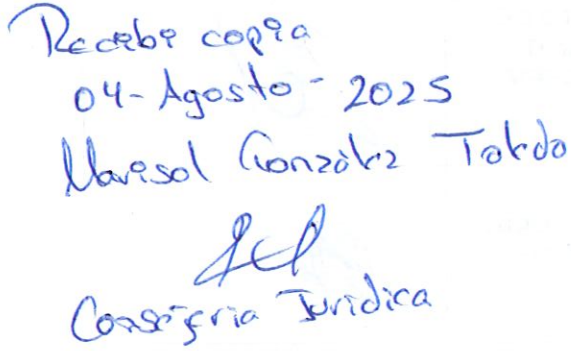 Recibi copia
04-Agosto-2025
Marisol González Toledo
Consejería Jurídica